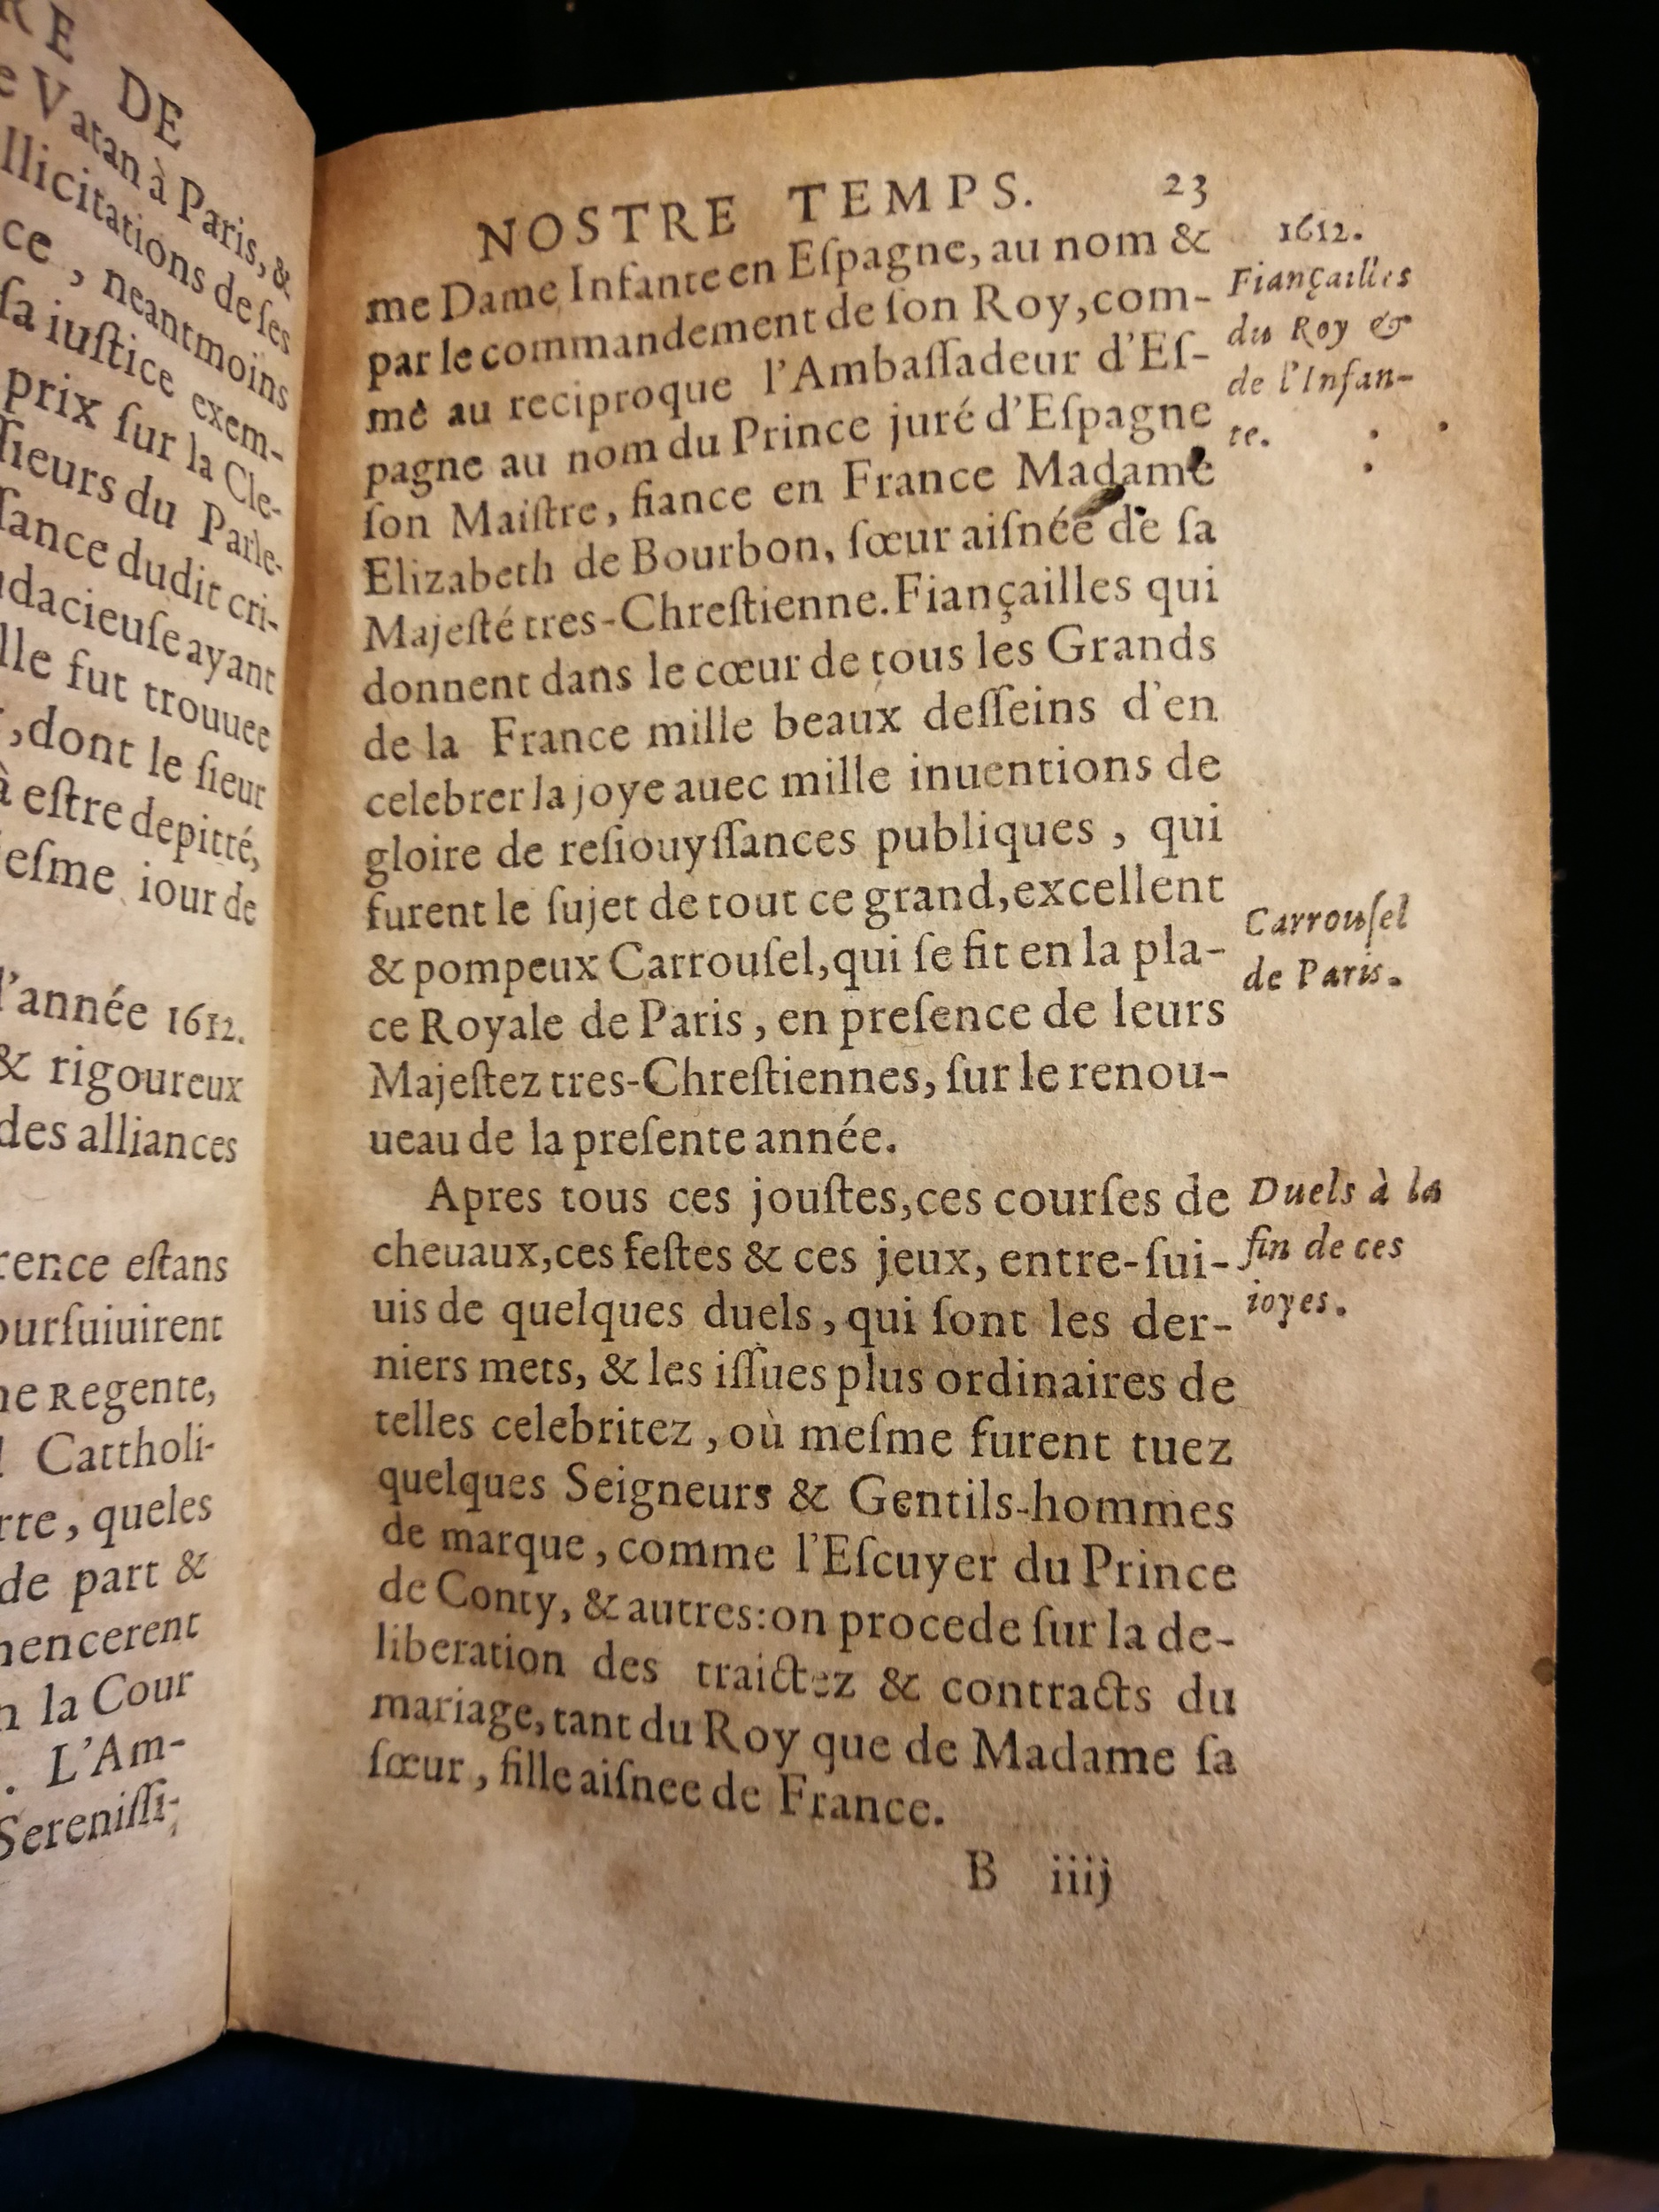 RE DE
e Vatan à Paris, &
llicitations de ſes
ce, neantmoins
ſa iuſtice exem-
prix ſur la Cle-
ſieurs du Parle-
ſance dudit cri-
dacieuſe ayant
lle fut trouuee
, dont le ſieur
à eſtre depitté,
eſme iour de
l'année 1612.
& rigoureux
des alliances
rence eſtans
ourſuiuirent
ne Regente,
Cattholi-
rte, queles
de part &
mencerent
n la Cour
. L'Am-
Sereniſſi-
NOSTRE TEMPS. 23
me Dame Infante en Eſpagne, au nom &
par le commandement de ſon Roy, com-
me au reciproque l'Ambaſſadeur d'Eſ-
pagne au nom du Prince juré d'Eſpagne
ſon Maiſtre, fiance en France Madame
Elizabeth de Bourbon, ſœur aiſnée de ſa
Majeſté tres-Chreſtienne. Fiançailles qui
donnent dans le cœur de tous les Grands
de la France mille beaux deſſeins d'en
celebrer la joye auec mille inuentions de
gloire de reſiouyſſances publiques, qui
furent le ſujet de tout ce grand, excellent
& pompeux Carrouſel, qui ſe fit en la pla-
ce Royale de Paris, en preſence de leurs
Majeſtez tres-Chreſtiennes, ſur le renou-
ueau de la preſente année.
Apres tous ces jouſtes, ces courſes de
cheuaux, ces feſtes & ces jeux, entre-ſui-
uis de quelques duels, qui ſont les der-
niers mets, & les iſſues plus ordinaires de
telles celebritez, où meſme furent tuez
quelques Seigneurs & Gentils-hommes
de marque, comme l'Eſcuyer du Prince
de Conty, & autres: on procede ſur la de-
liberation des traictez & contracts du
mariage, tant du Roy que de Madame ſa
ſœur, fille aiſnee de France.
B iiij
1612.
Fiançailles
du Roy &
de l'Infan-
te.
Carrouſel
de Paris.
Duels à la
fin de ces
ioyes.